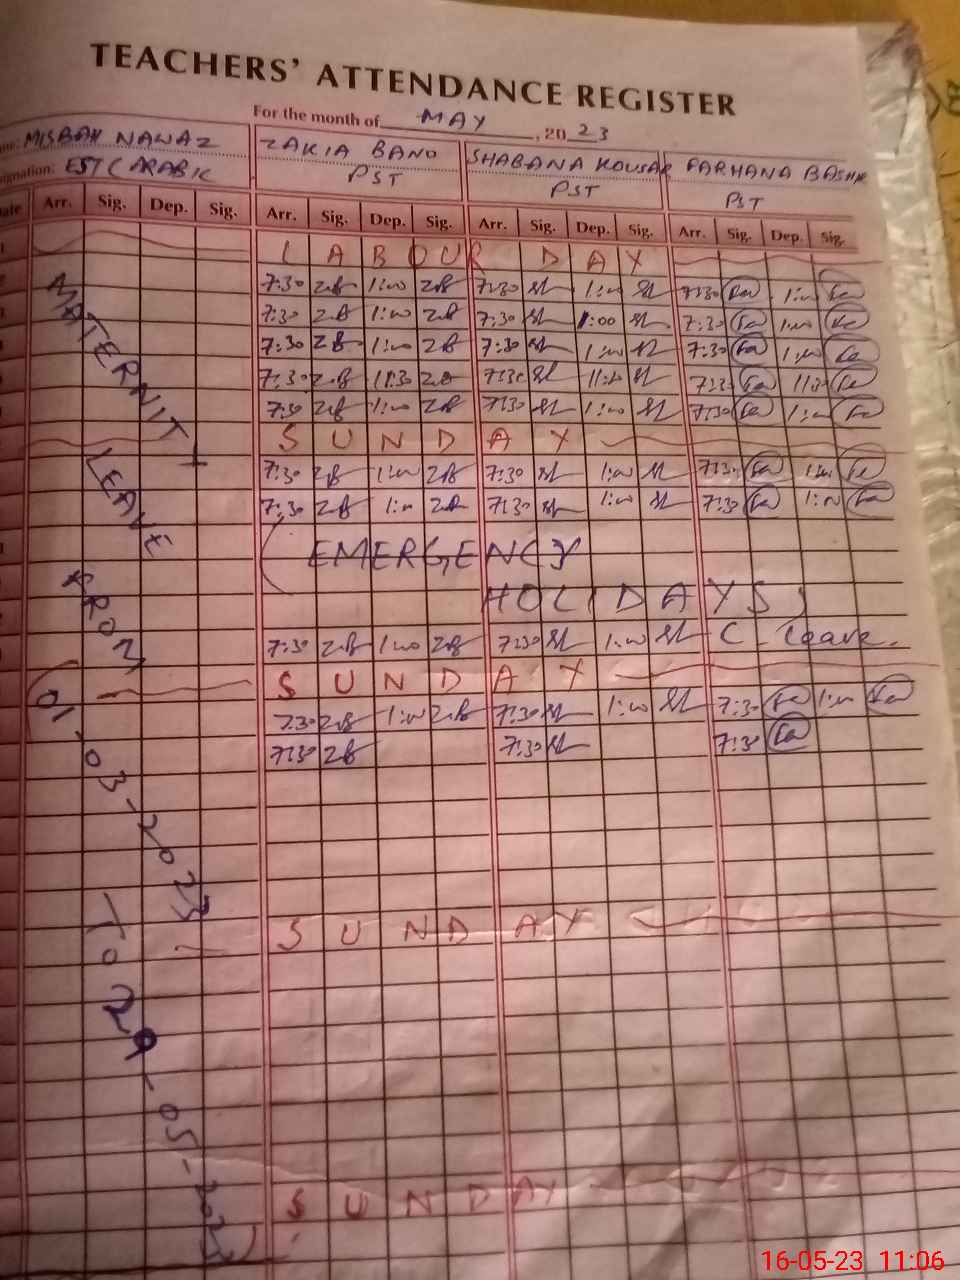 TEACHERS' ATTENDANCE REGISTER
For the month of MAY, 2023
MISBAH NAWAZ ZAKIA BANO SHABANA KOUSAR FARHANA BASHIR
signation: EST (ARABIC PST PST PST
Date Arr. Sig. Dep. Sig. Arr. Sig. Dep. Sig. Arr. Sig. Dep. Sig. Arr. Sig. Dep. Sig.
LABOUR DAY
7:30 ZB 1:00 ZB 7:30 SK 1:00 SK 7:30 Fa 1:00 Fa
7:30 ZB 1:00 ZB 7:30 SK 1:00 SK 7:30 Fa 1:00 Fa
7:30 ZB 1:00 ZB 7:30 SK 1:00 SK 7:30 Fa 1:00 Fa
7:30 ZB 11:30 ZB 7:30 SK 7:30 Fa Fa
7:30 ZB 1:00 ZB 7:30 SK 1:00 SK 7:30 Fa 1:00 Fa
SUNDAY
7:30 ZB 1:00 ZB 7:30 SK 1:00 SK 7:30 Fa 1:00 Fa
7:30 ZB 1:00 ZB 7:30 SK 1:00 SK 7:30 Fa 1:00 Fa
(EMERGENCY
HOLIDAYS)
7:30 ZB 1:00 ZB 7:30 SK 1:00 SK C. leave.
SUNDAY
7:30 ZB 1:00 ZB 7:30 SK 1:00 SK 7:30 Fa 1:00 Fa
7:30 ZB 7:30 SK 7:30 Fa
SUNDAY
SUNDAY
MATERNITY LEAVE FROM (01-03-2023 TO 29-05-2023)
16-05-23 11:06